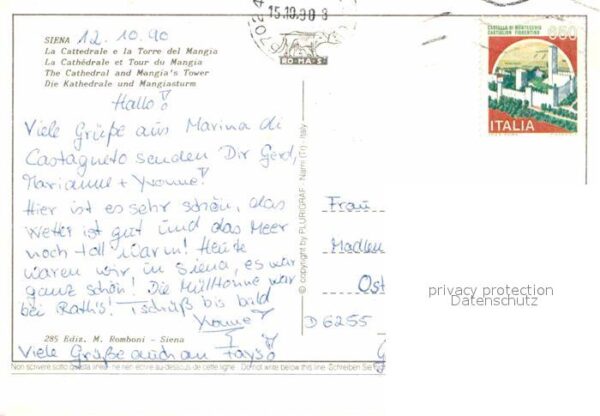 SIENA 12.10.90
La Cattedrale e la Torre del Mangia
La Cathédrale et Tour du Mangia
The Cathedral and Mangia's Tower
Die Kathedrale und Mangiasturm
Hallo!
Viele Grüße aus Marina di
Castagneto senden Dir Gerd,
Marianne + Yvonne!
Hier ist es sehr schön, das
Wetter ist gut und das Meer
noch toll warm! Heute
waren wir in Siena, es war
ganz schön! Die Mülltonne war
bei Rathis! Tschüß bis bald
Yvonne
285 Ediz. M. Romboni - Siena
Viele Grüße auch an Fays!
Non scrivere sotto questa linea ne rien écrire au-dessous de cette ligne Do not write below this line Schreiben Sie
© copyright by PLURIGRAF - Narni (Tr) - Italy
15.10.90 8
ROMA-S
CASTELLO DI MONTECCHIO
CASTIGLION FIORENTINO
650
ITALIA
Frau
Madlen
Ost
D 6255
privacy protection
Datenschutz